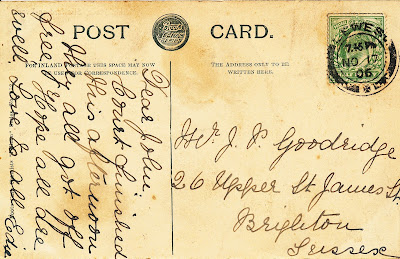 POST CARD.
FOR INLAND THIS SPACE MAY NOW
BE USED FOR CORRESPONDENCE.
THE ADDRESS ONLY TO BE
WRITTEN HERE.
Dear John,
Court finished
this afternoon
They all got off
free, Hope all are
well, Love to all Edie
LEWES
7.45 PM
NO 17
06
Mr J. P. Goodridge
26 Upper St James St
Brighton
Sussex